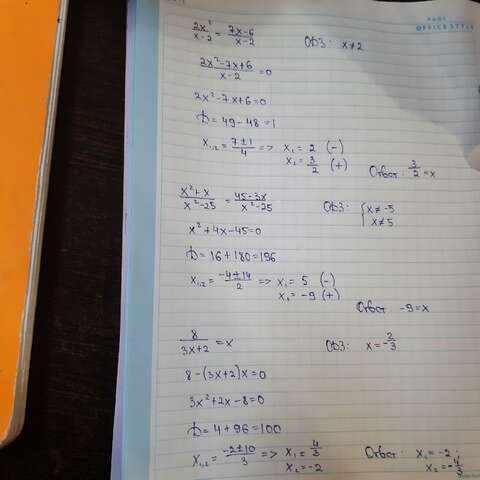 OFFICE STYLE
2x²/x-2 = 7x-6/x-2 ОДЗ: x≠2
2x²-7x+6/x-2 = 0
2x²-7x+6=0
D = 49-48=1
x₁,₂ = 7±1/4 => x₁ = 2 (-)
x₂ = 3/2 (+)
Ответ: 3/2 = x
x²+x/x²-25 = 45-3x/x²-25 ОДЗ: { x≠-5
x≠5
x²+4x-45=0
D = 16+180=196
x₁,₂ = -4±14/2 => x₁ = 5 (-)
x₂ = -9 (+)
Ответ: -9=x
8/3x+2 = x ОДЗ: x=-2/3
8-(3x+2)x=0
3x²+2x-8=0
D = 4+96=100
x₁,₂ = -2±10/3 => x₁ = 4/3
x₂ = -2
Ответ: x₁ = -2;
x₂ = -4/3